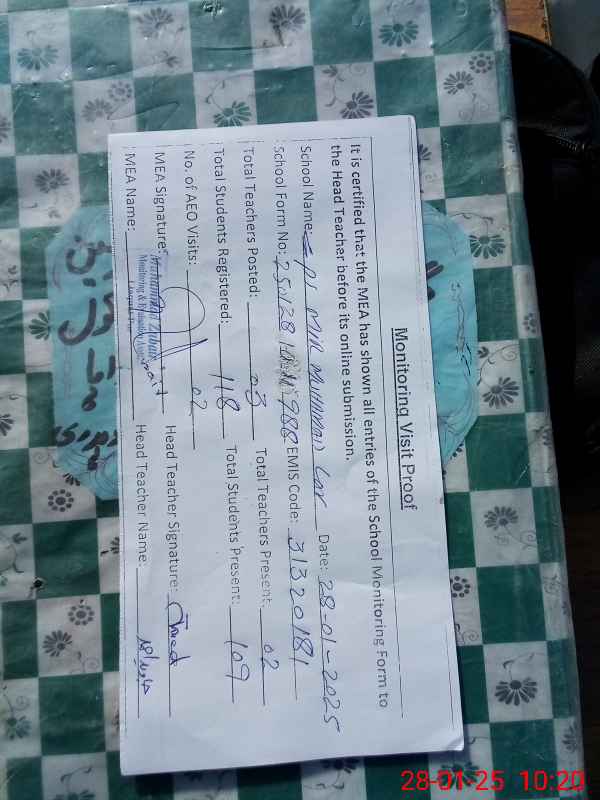 Monitoring Visit Proof
It is certified that the MEA has shown all entries of the School Monitoring Form to
the Head Teacher before its online submission.
School Name: MIR MUHAMMAD Date: 28-01-2025
School Form No: EMIS Code: 31320181
Total Teachers Posted: 03 Total Teachers Present: 02
Total Students Registered: 118 Total Students Present: 109
No. of AEO Visits: 02
MEA Signature: Head Teacher Signature:
Muhammad Zubair
Monitoring & Evaluation Assistant
MEA Name: Head Teacher Name:
28-01-25 10:20